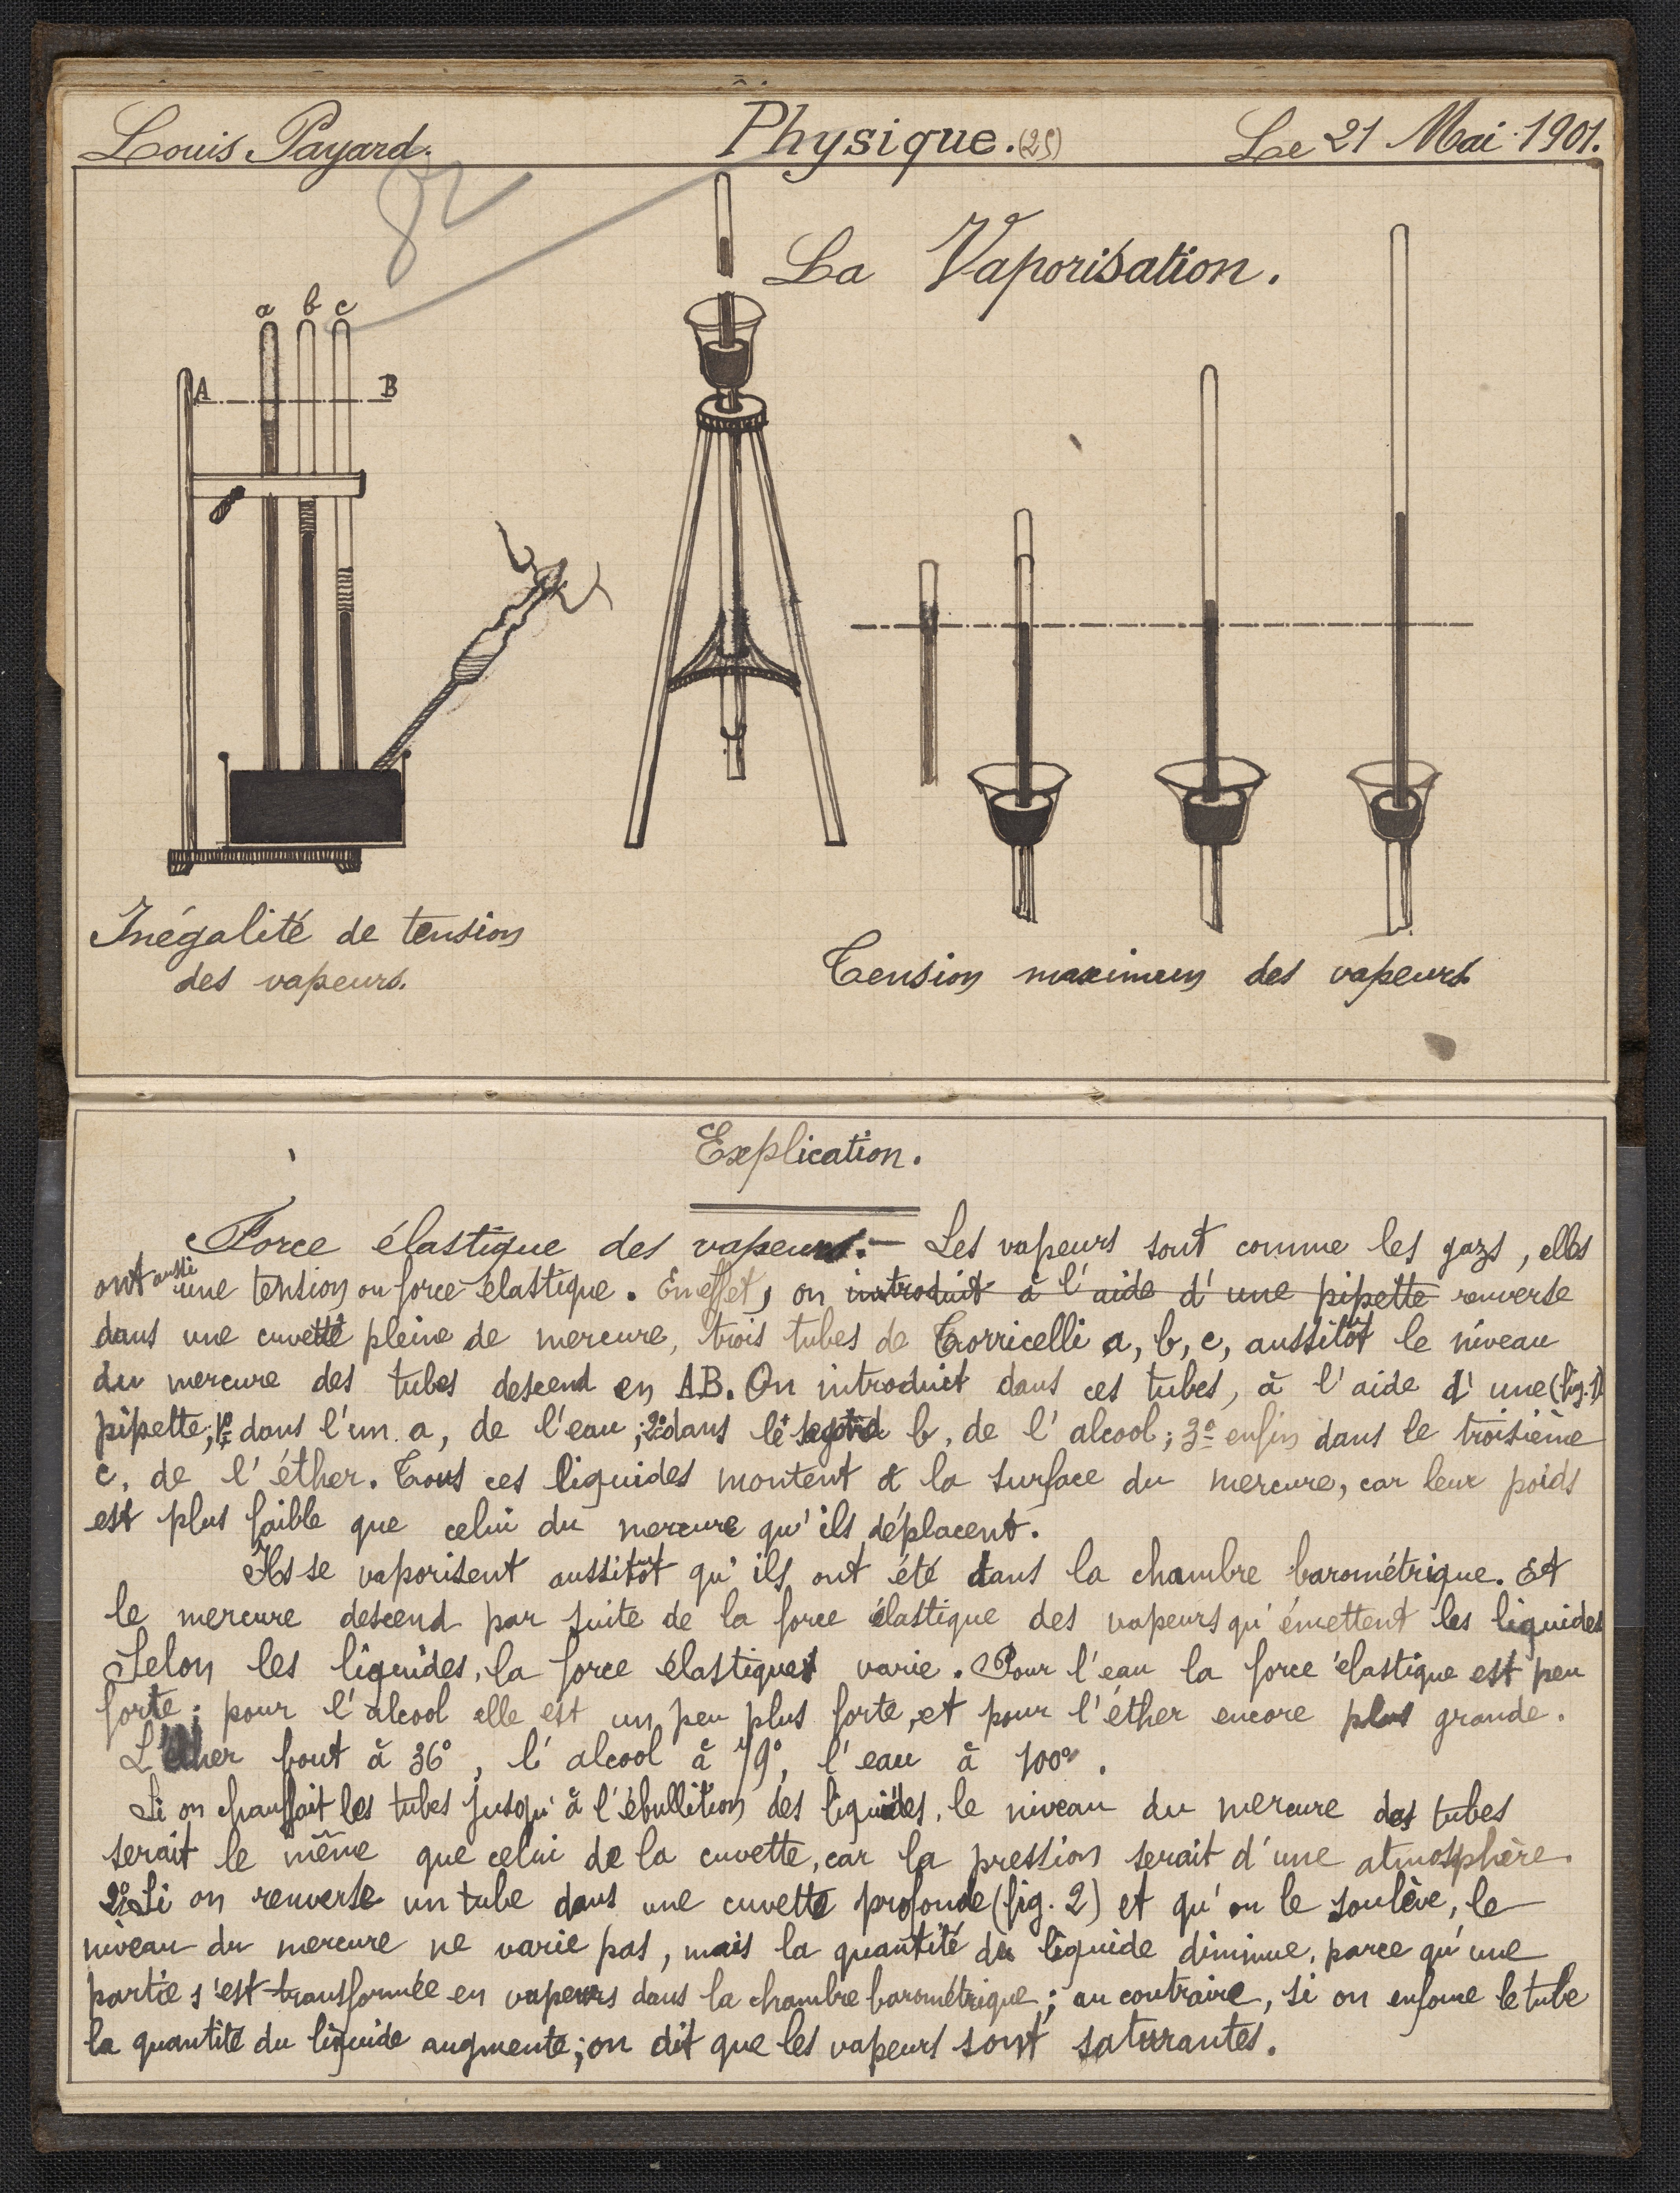 Louis Payard.
Physique. (25)
Le 21 Mai 1901.
La Vaporisation.
a b c
A B
Inégalité de tension
des vapeurs.
Tension maximum des vapeurs.
Explication.
Force élastique des vapeurs.— Les vapeurs sont comme les gazs, elles
ont aussi une tension ou force élastique. En effet, on introduit à l'aide d'une pipette renverse
dans une cuvette pleine de mercure, trois tubes de Torricelli a, b, c, aussitôt le niveau
du mercure des tubes descend en AB. On introduit dans ces tubes, à l'aide d'une (fig. 1)
pipette; 1º dans l'un a, de l'eau; 2º dans le second b, de l'alcool; 3º enfin dans le troisième
c, de l'éther. Tous ces liquides montent à la surface du mercure, car leur poids
est plus faible que celui du mercure qu'ils déplacent.
Ils se vaporisent aussitôt qu'ils ont été dans la chambre barométrique. Et
le mercure descend par suite de la force élastique des vapeurs qu'émettent les liquides
Selon les liquides, la force élastique varie. Pour l'eau la force élastique est peu
forte; pour l'alcool elle est un peu plus forte, et pour l'éther encore plus grande.
L'éther bout à 36°, l'alcool à 79°, l'eau à 100°.
Si on chauffait les tubes jusqu'à l'ébullition des liquides, le niveau du mercure des tubes
serait le même que celui de la cuvette, car la pression serait d'une atmosphère.
2º Si on renverse un tube dans une cuvette profonde (fig. 2) et qu'on le soulève, le
niveau du mercure ne varie pas, mais la quantité du liquide diminue, parce qu'une
partie s'est transformée en vapeurs dans la chambre barométrique; au contraire, si on enfonce le tube
la quantité du liquide augmente; on dit que les vapeurs sont saturantes.